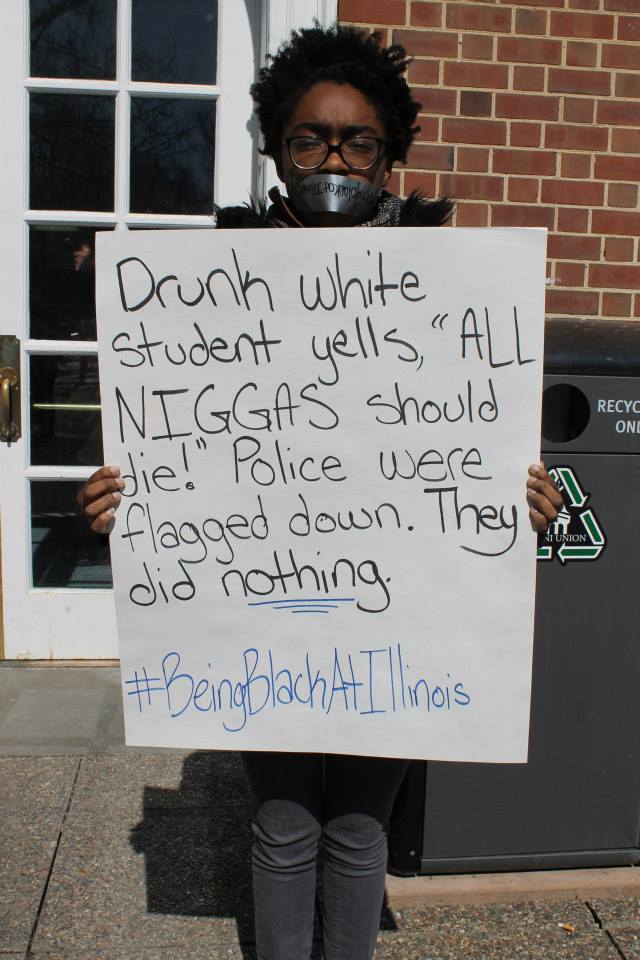 #BeingBlackAtIllinois
Drunk white
student yells, "ALL
NIGGAS should
die!" Police were
flagged down. They
did nothing.
#BeingBlackAtIllinois
RECYC
ONL
NI UNION